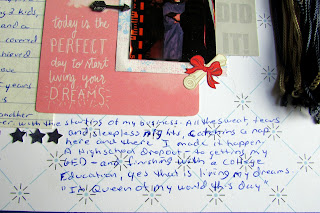 g 2 kids,
and a
covered
chieved
love
years
is
today is the
PERFECT
day to start
living your
DREAMS
DID
IT!
another
with the starting of my business. All the sweat, tears
and sleepless nights, catching a nap
here and there I made it happen
A Highschool Dropout - to getting my
GED - and finishing with a College
Education, yes that is living my dreams
"I'm Queen of my world this day"